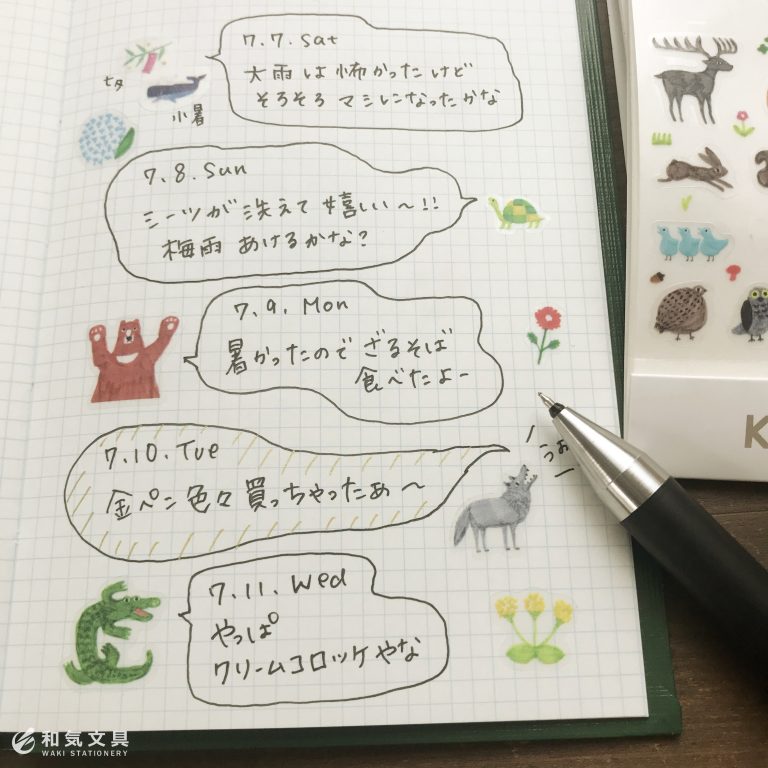 7.7.Sat
大雨は怖かったけど
そろそろマシになったかな
七夕
小暑
7.8.Sun
シーツが洗えて嬉しい〜!!
梅雨あけるかな?
7.9.Mon
暑かったのでざるそば
食べたよー
7.10.Tue
金ペン色々買っちゃったぁ〜
うぉ
7.11.Wed
やっぱ
クリームコロッケやな
K
和気文具
WAKI STATIONERY